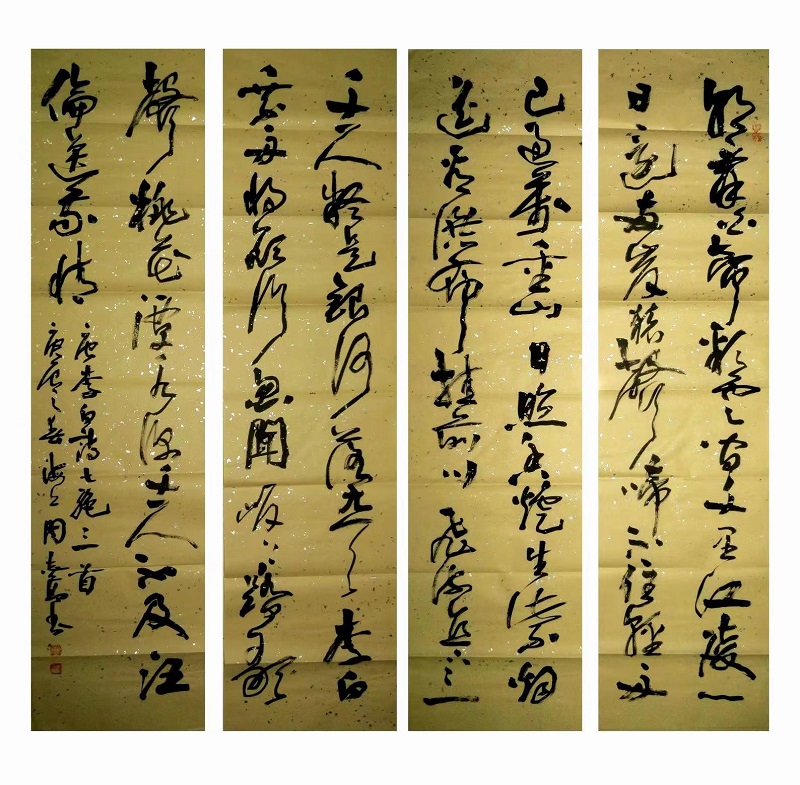 朝辞白帝彩云间千里江陵一
日还两岸猿声啼不住轻舟
已过万重山日照香炉生紫烟
遥看瀑布挂前川飞流直下三
千尺疑是银河落九天李白
乘舟将欲行忽闻岸上踏歌
声桃花潭水深千尺不及汪
伦送我情
唐李白诗七绝三首
庚辰之春海上周志高书